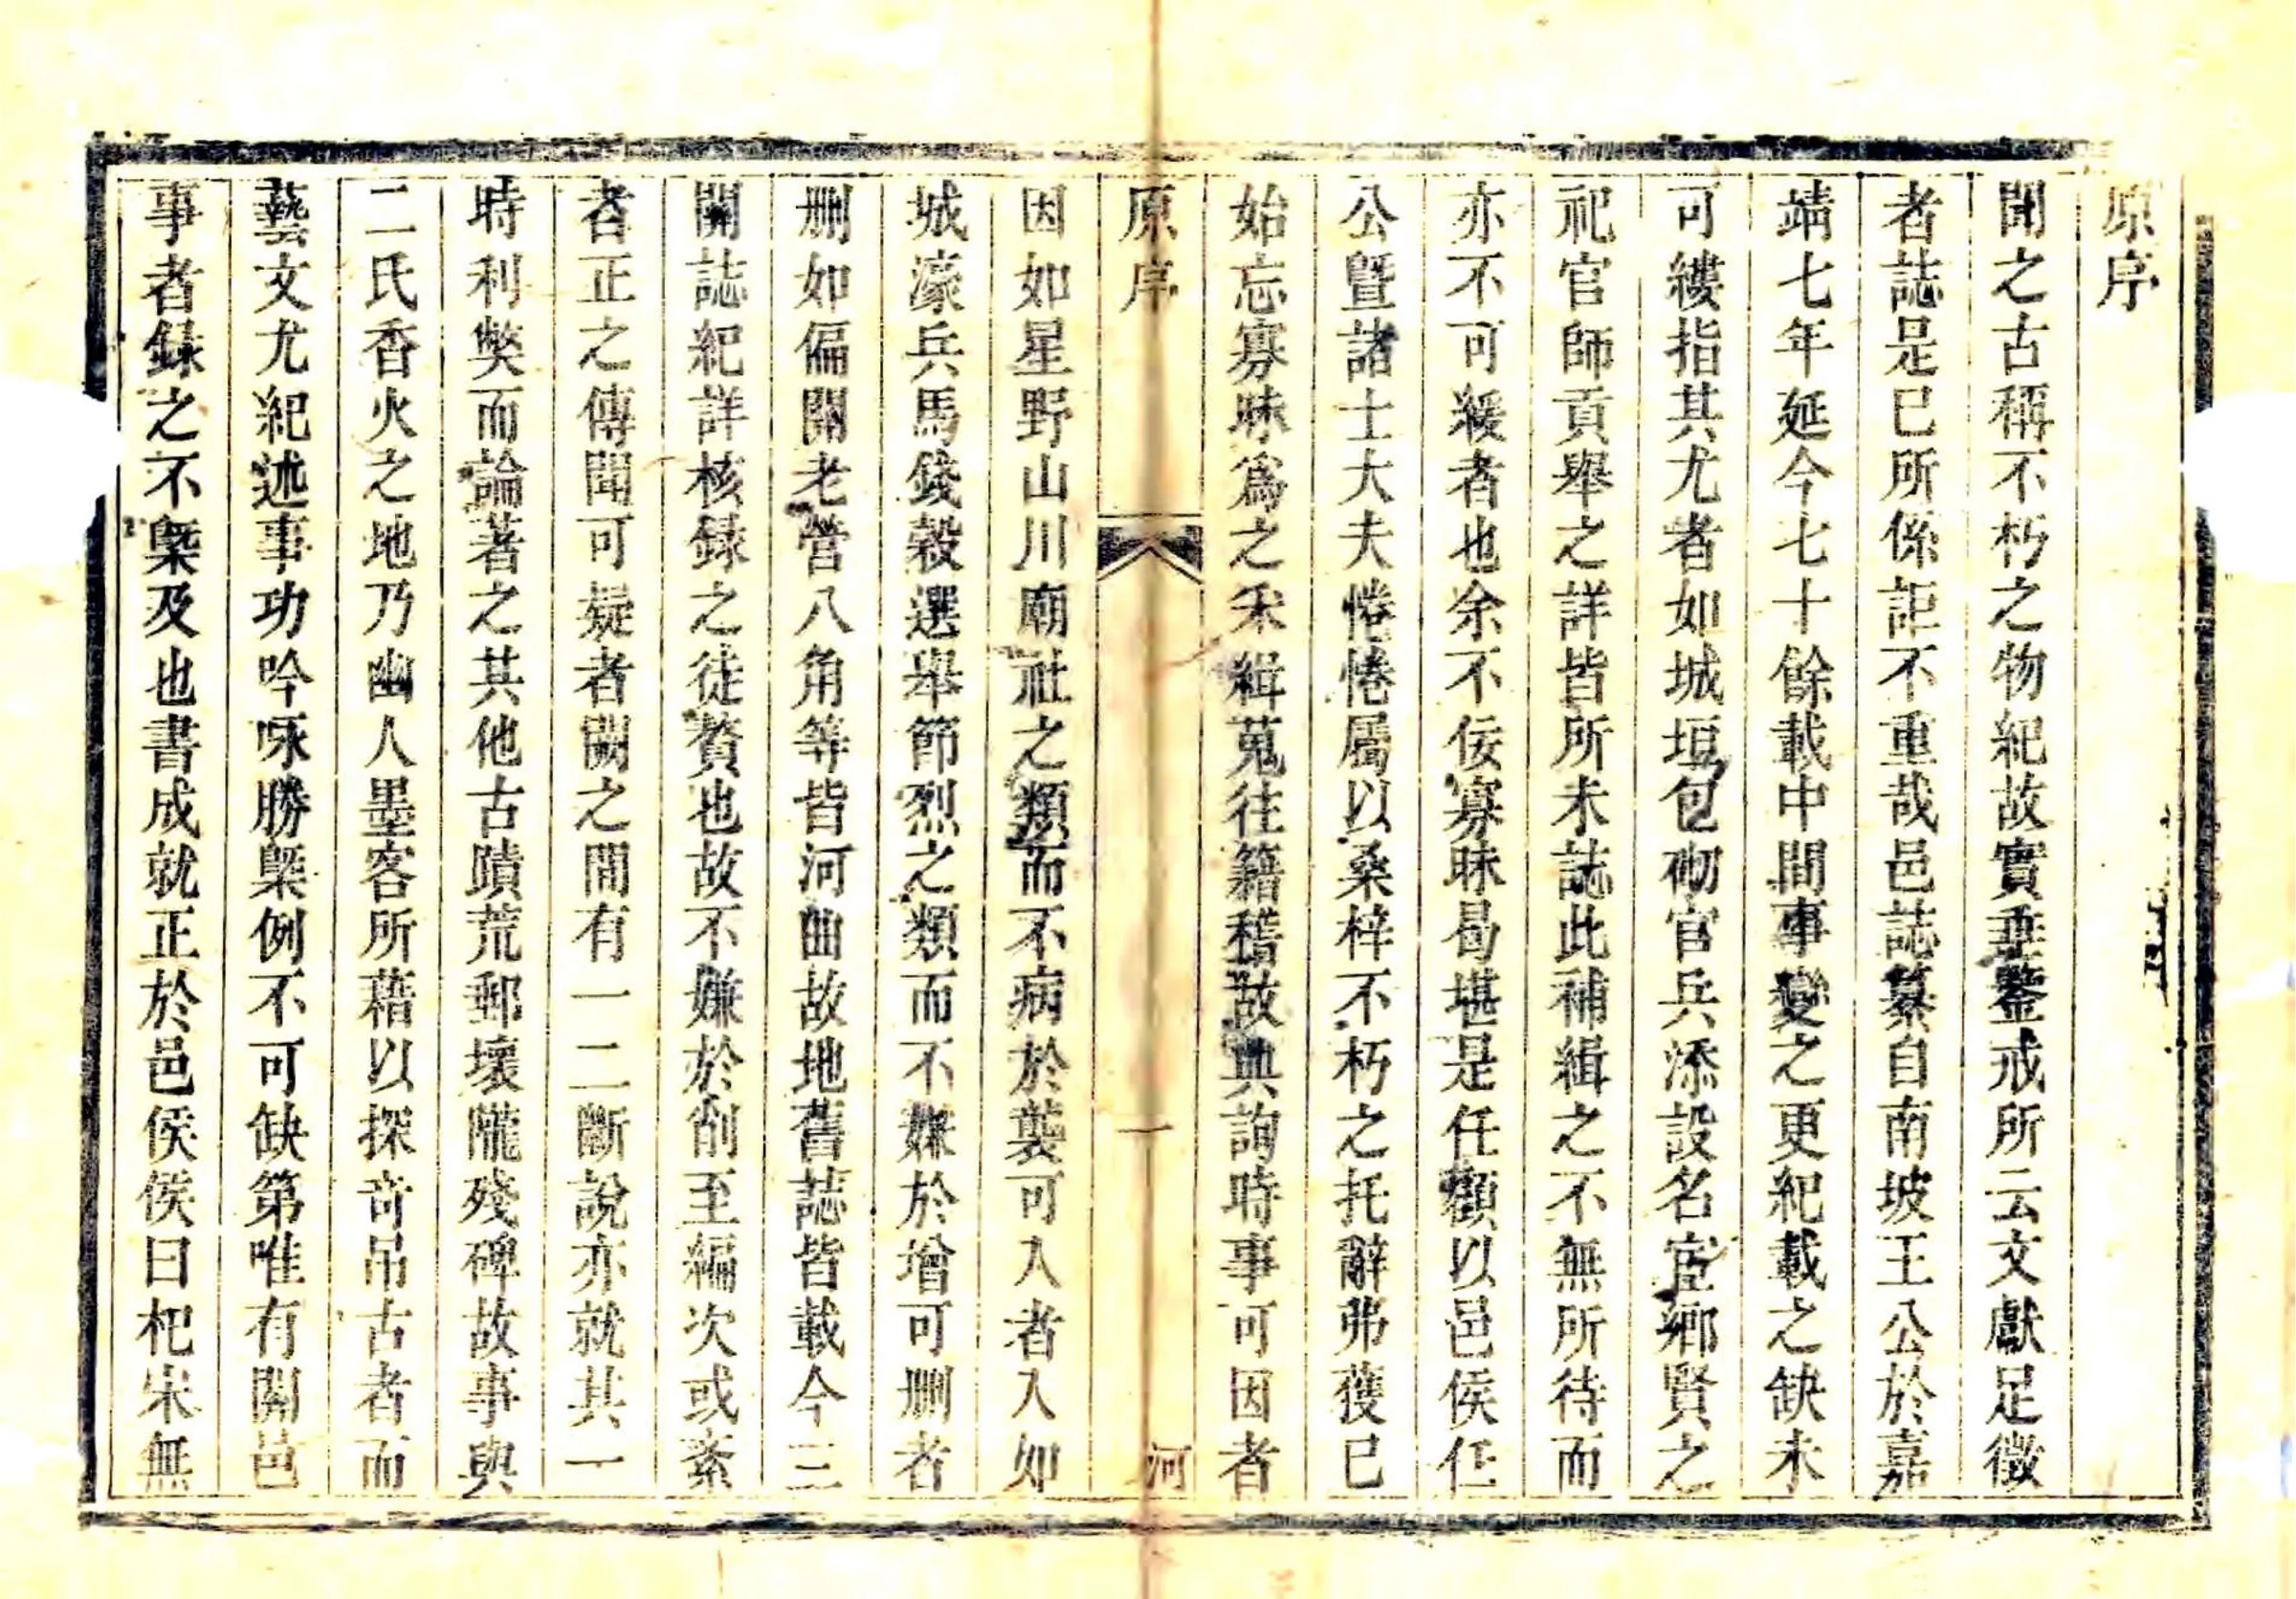 原序
聞之古稱不朽之物紀故實垂鑒戒所云文獻足徵
者誌是已所係詎不重哉邑誌纂自南坡王公於嘉
靖七年延今七十餘載中間事變之更紀載之缺未
可縷指其尤者如城垣包砌官兵添設名宦鄉賢之
祀官師貢舉之詳皆所未誌此補緝之不無所待而
亦不可緩者也余不佞寡昧曷堪是任顧以邑侯任
公曁諸士大夫惓惓屬以桑梓不朽之托辭弗獲已
始忘寡昧爲之采緝蒐往籍稽故典詢時事可因者
原序 一 河
因如星野山川廟社之類而不病於襲可入者入如
城濠兵馬錢穀選舉節烈之類而不嫌於增可刪者
刪如偏關老營八角等皆河曲故地舊誌皆載今三
關誌紀詳核錄之徒贅也故不嫌於削至編次或紊
者正之傳聞可疑者闕之間有一二斷說亦就其一
時利獘而論著之其他古蹟荒郵壞隴殘碑故事與
二氏香火之地乃幽人墨客所藉以探奇吊古者而
藝文尤紀述事功吟咏勝槩例不可缺第唯有關邑
事者錄之不槩及也書成就正於邑侯侯曰杞宋無